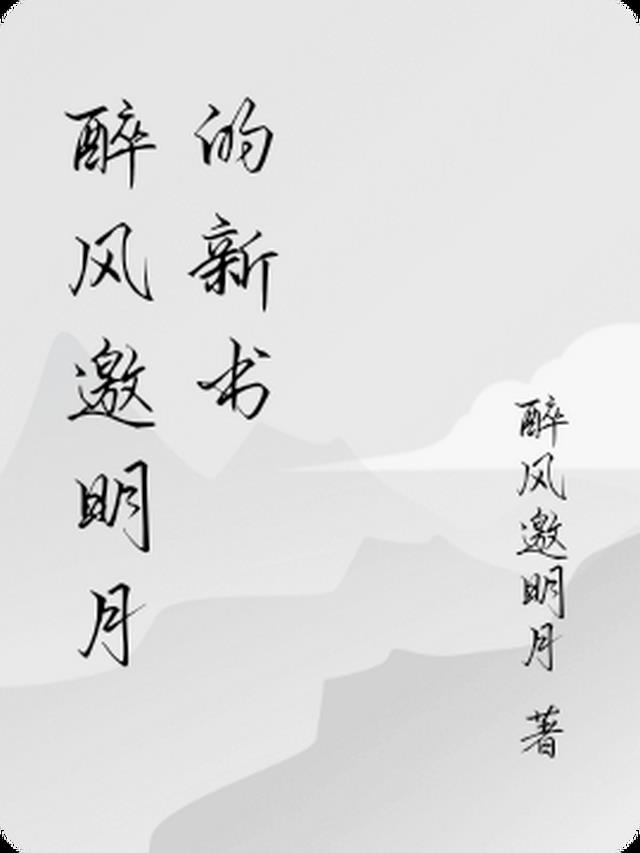 醉风邀明月
的新书
醉风邀明月 著